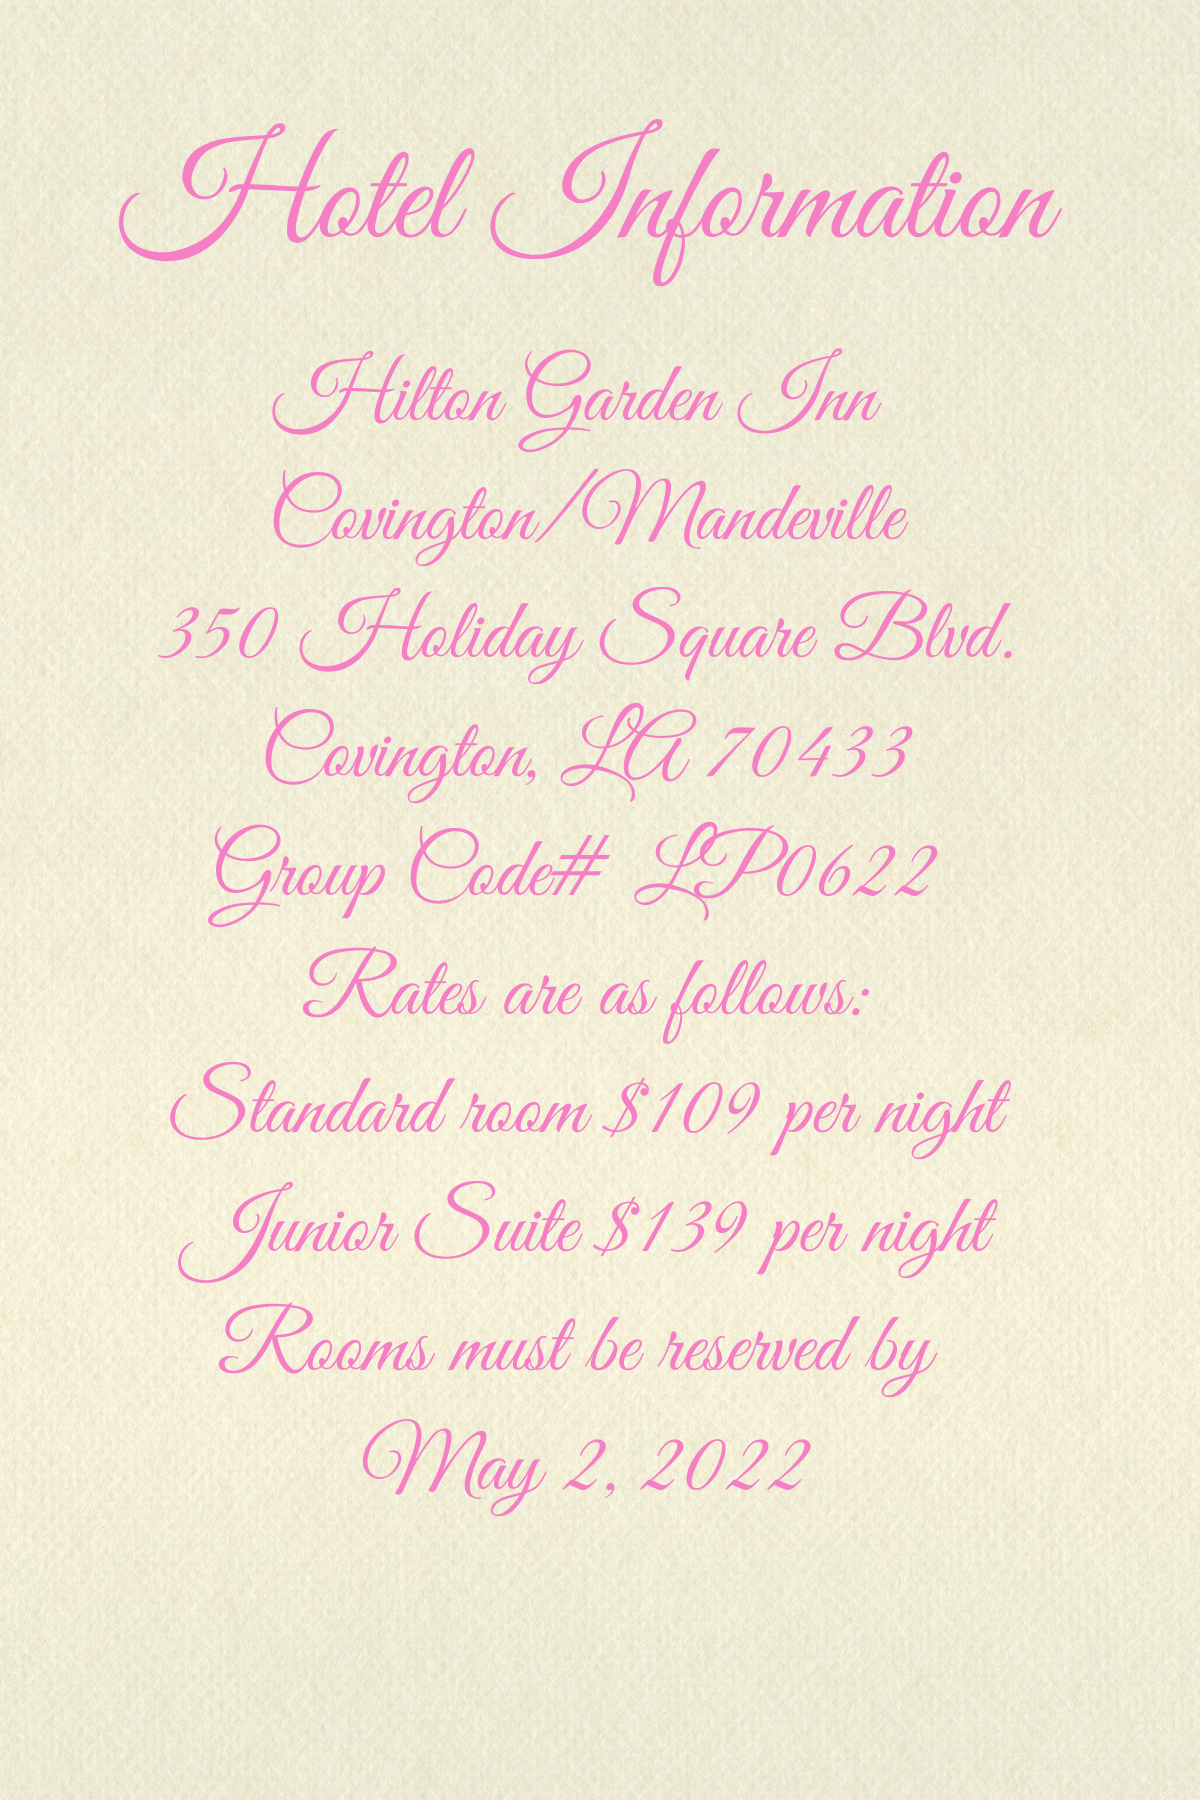 Hotel Information
Hilton Garden Inn
Covington/Mandeville
350 Holiday Square Blvd.
Covington, LA 70433
Group Code# LP0622
Rates are as follows:
Standard room $109 per night
Junior Suite $139 per night
Rooms must be reserved by
May 2, 2022